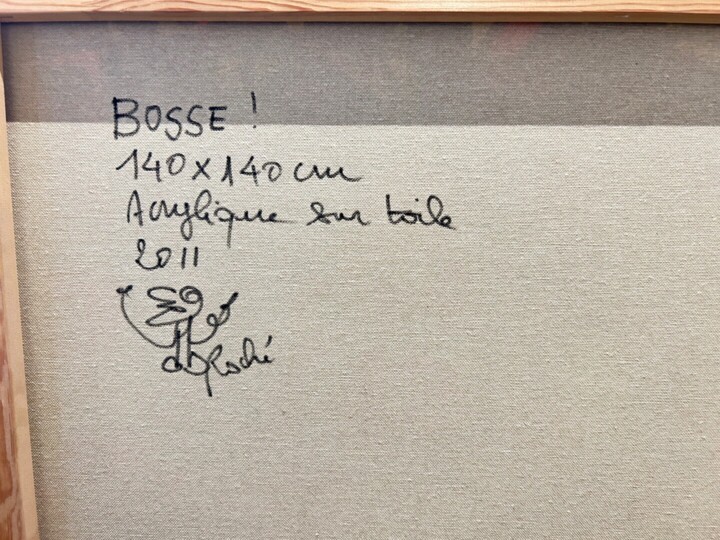 BOSSE !
140 x 140 cm
Acrylique sur toile
2011
Roché